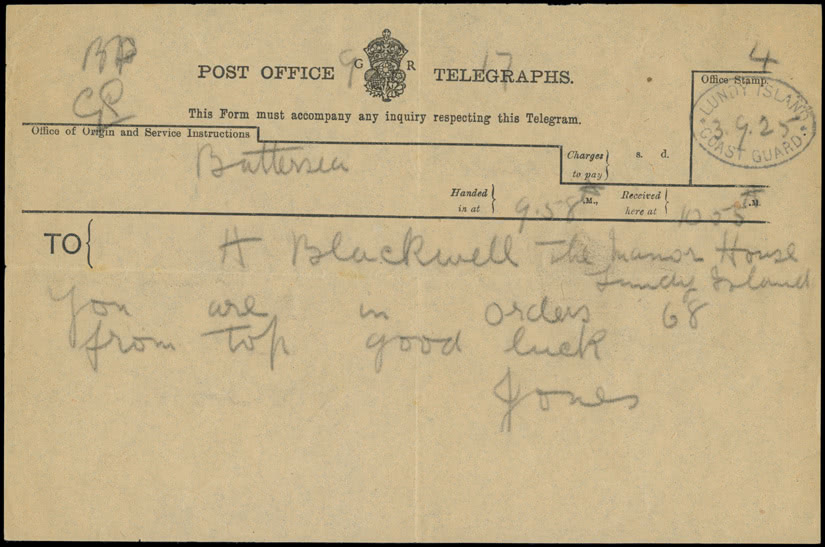 4
BP
9 17
POST OFFICE G R TELEGRAPHS.
GR
Office Stamp.
LUNDY ISLAND
3.9.25
COAST GUARD.
This Form must accompany any inquiry respecting this Telegram.
Office of Origin and Service Instructions
Battersea
Charges to pay s. d.
Handed in at 9.58 .M., Received here at 10.55 .M.
TO H Blackwell The Manor House
Lundy Island
You are in orders 68
from top good luck
Jones